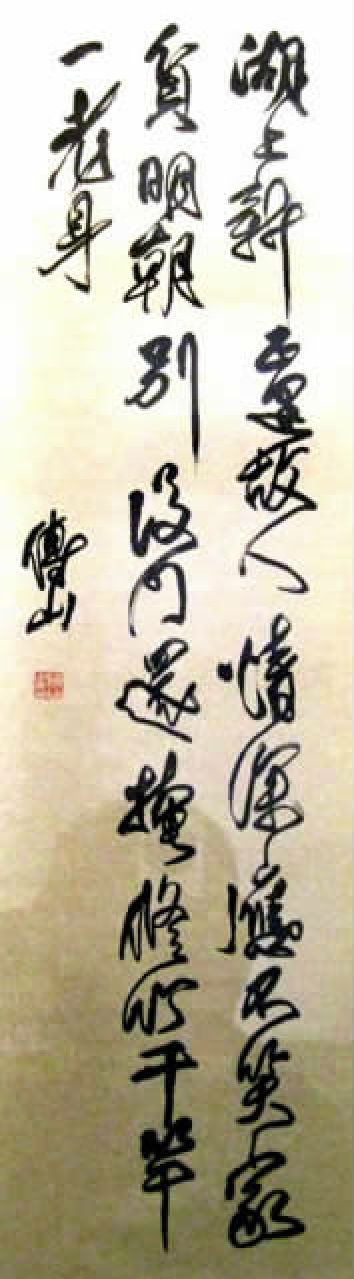 湖上新正逢故人情深應不笑家
貧明朝別後門還掩修竹千竿
一老身
傅山